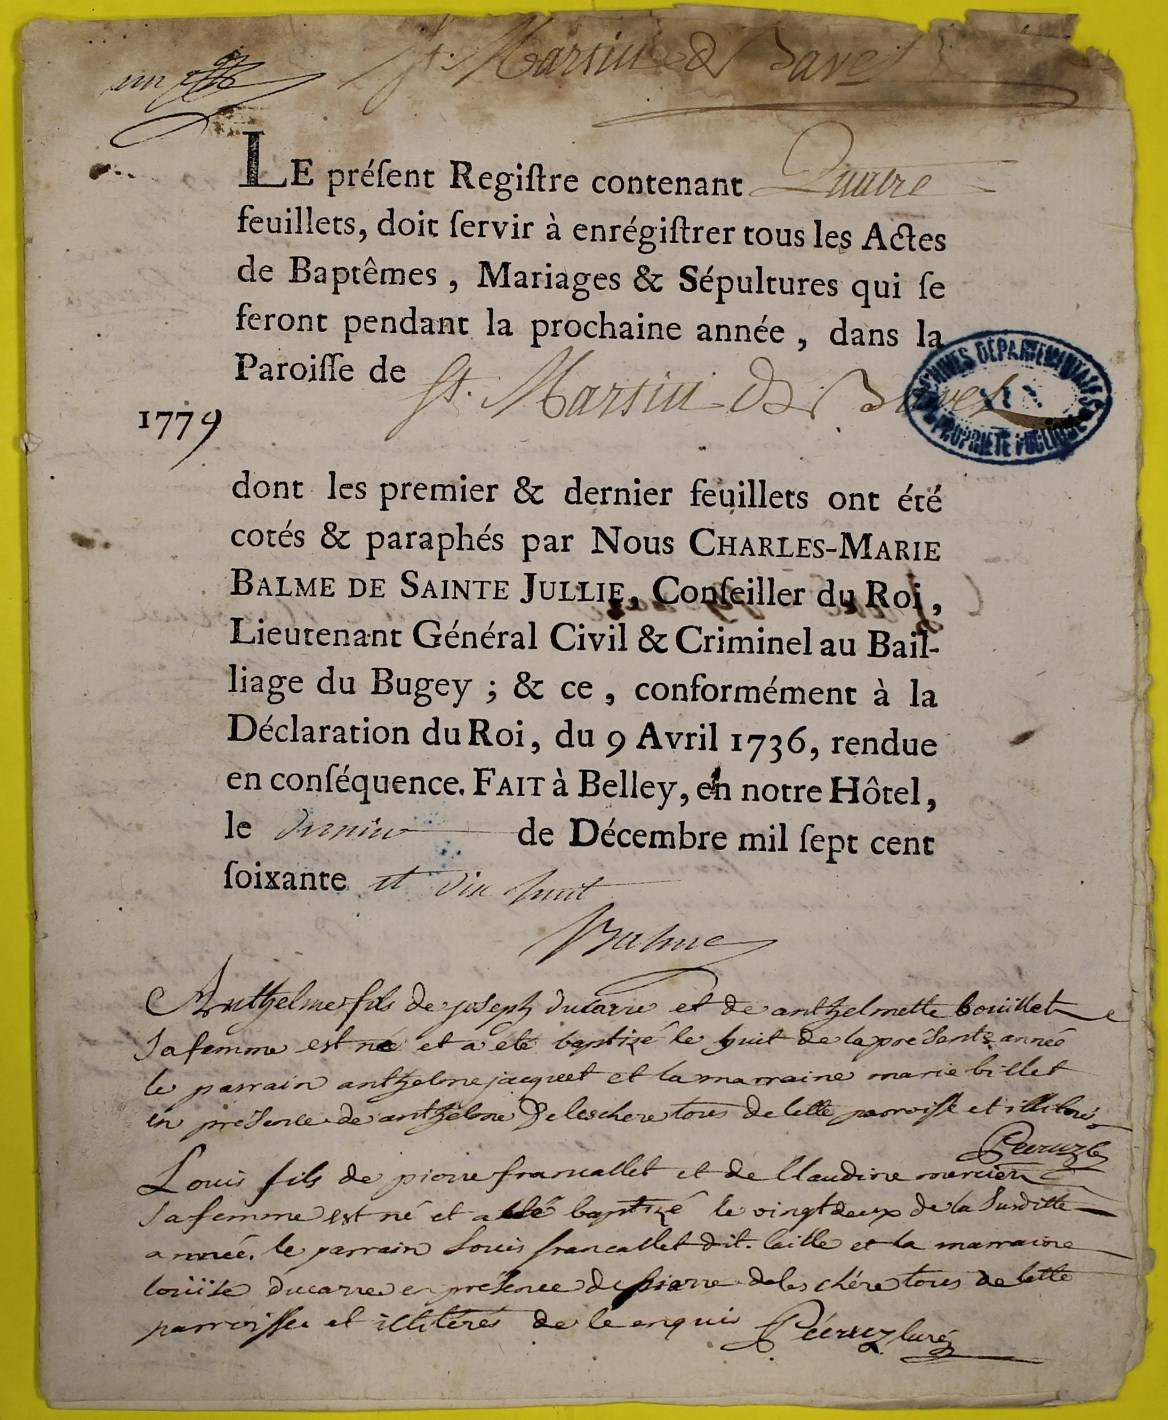 un
St. Martin de Bavel
LE préſent Regiſtre contenant Quatre
feuillets, doit ſervir à enrégiſtrer tous les Actes
de Baptêmes, Mariages & Sépultures qui ſe
feront pendant la prochaine année, dans la
Paroiſſe de St. Martin de Bavel
ARCHIVES DÉPARTEMENTALES
AIN
PROPRIÉTÉ PUBLIQUE
1779
dont les premier & dernier feuillets ont été
cotés & paraphés par Nous CHARLES-MARIE
BALME DE SAINTE JULLIE, Conſeiller du Roi,
Lieutenant Général Civil & Criminel au Bail-
liage du Bugey ; & ce, conformément à la
Déclaration du Roi, du 9 Avril 1736, rendue
en conſéquence. FAIT à Belley, en notre Hôtel,
le dernier de Décembre mil ſept cent
ſoixante et dix huit
Balme
Anthelme fils de joseph ducarre et de anthelmette bouillet
sa femme est né et a eté baptizé le huit de la présente année
le parrain anthelme jacquet et la marraine marie billet
en présence de anthelme deleschere tous de cette parroisse et
Peruz
Louis fils de pierre francallet et de Claudine mercier
sa femme est né et a été baptizé le vingt deux de la susditte
année. le parrain Louis francallet dit. et la marraine
louïse ducarre en présence de pierre deleschére tous de cette
parroisse et illitérés de ce enquis Péruz curé